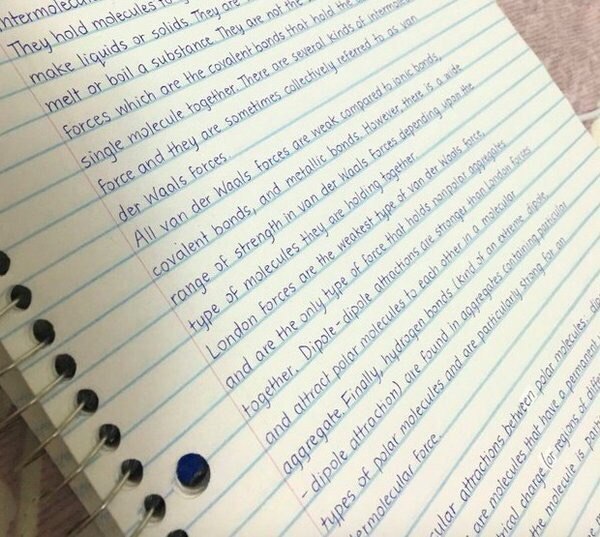 They hold molecules to
make liquids or solids. They are
melt or boil a substance. They are not the
forces which are the covalent bonds that hold the
single molecule together. There are several kinds of
force and they are sometimes collectively referred to as van
der Waals forces.
All van der Waals forces are weak compared to ionic bonds,
covalent bonds, and metallic bonds. However, there is a wide
range of strength in van der Waals forces depending upon the
type of molecules they are holding together.
London forces are the weakest type of van der Waals force,
and are the only type of force that holds nonpolar aggregates
together. Dipole-dipole attractions are stronger than London forces
and attract polar molecules to each other in a molecular
aggregate. Finally, hydrogen bonds (kind of an extreme dipole
- dipole attraction) are found in aggregates containing particular
types of polar molecules and are particularly strong for an
ermolecular force.
cular attractions between polar molecules,
are molecules that have a permanent
trical charge (or regions of
the molecule is